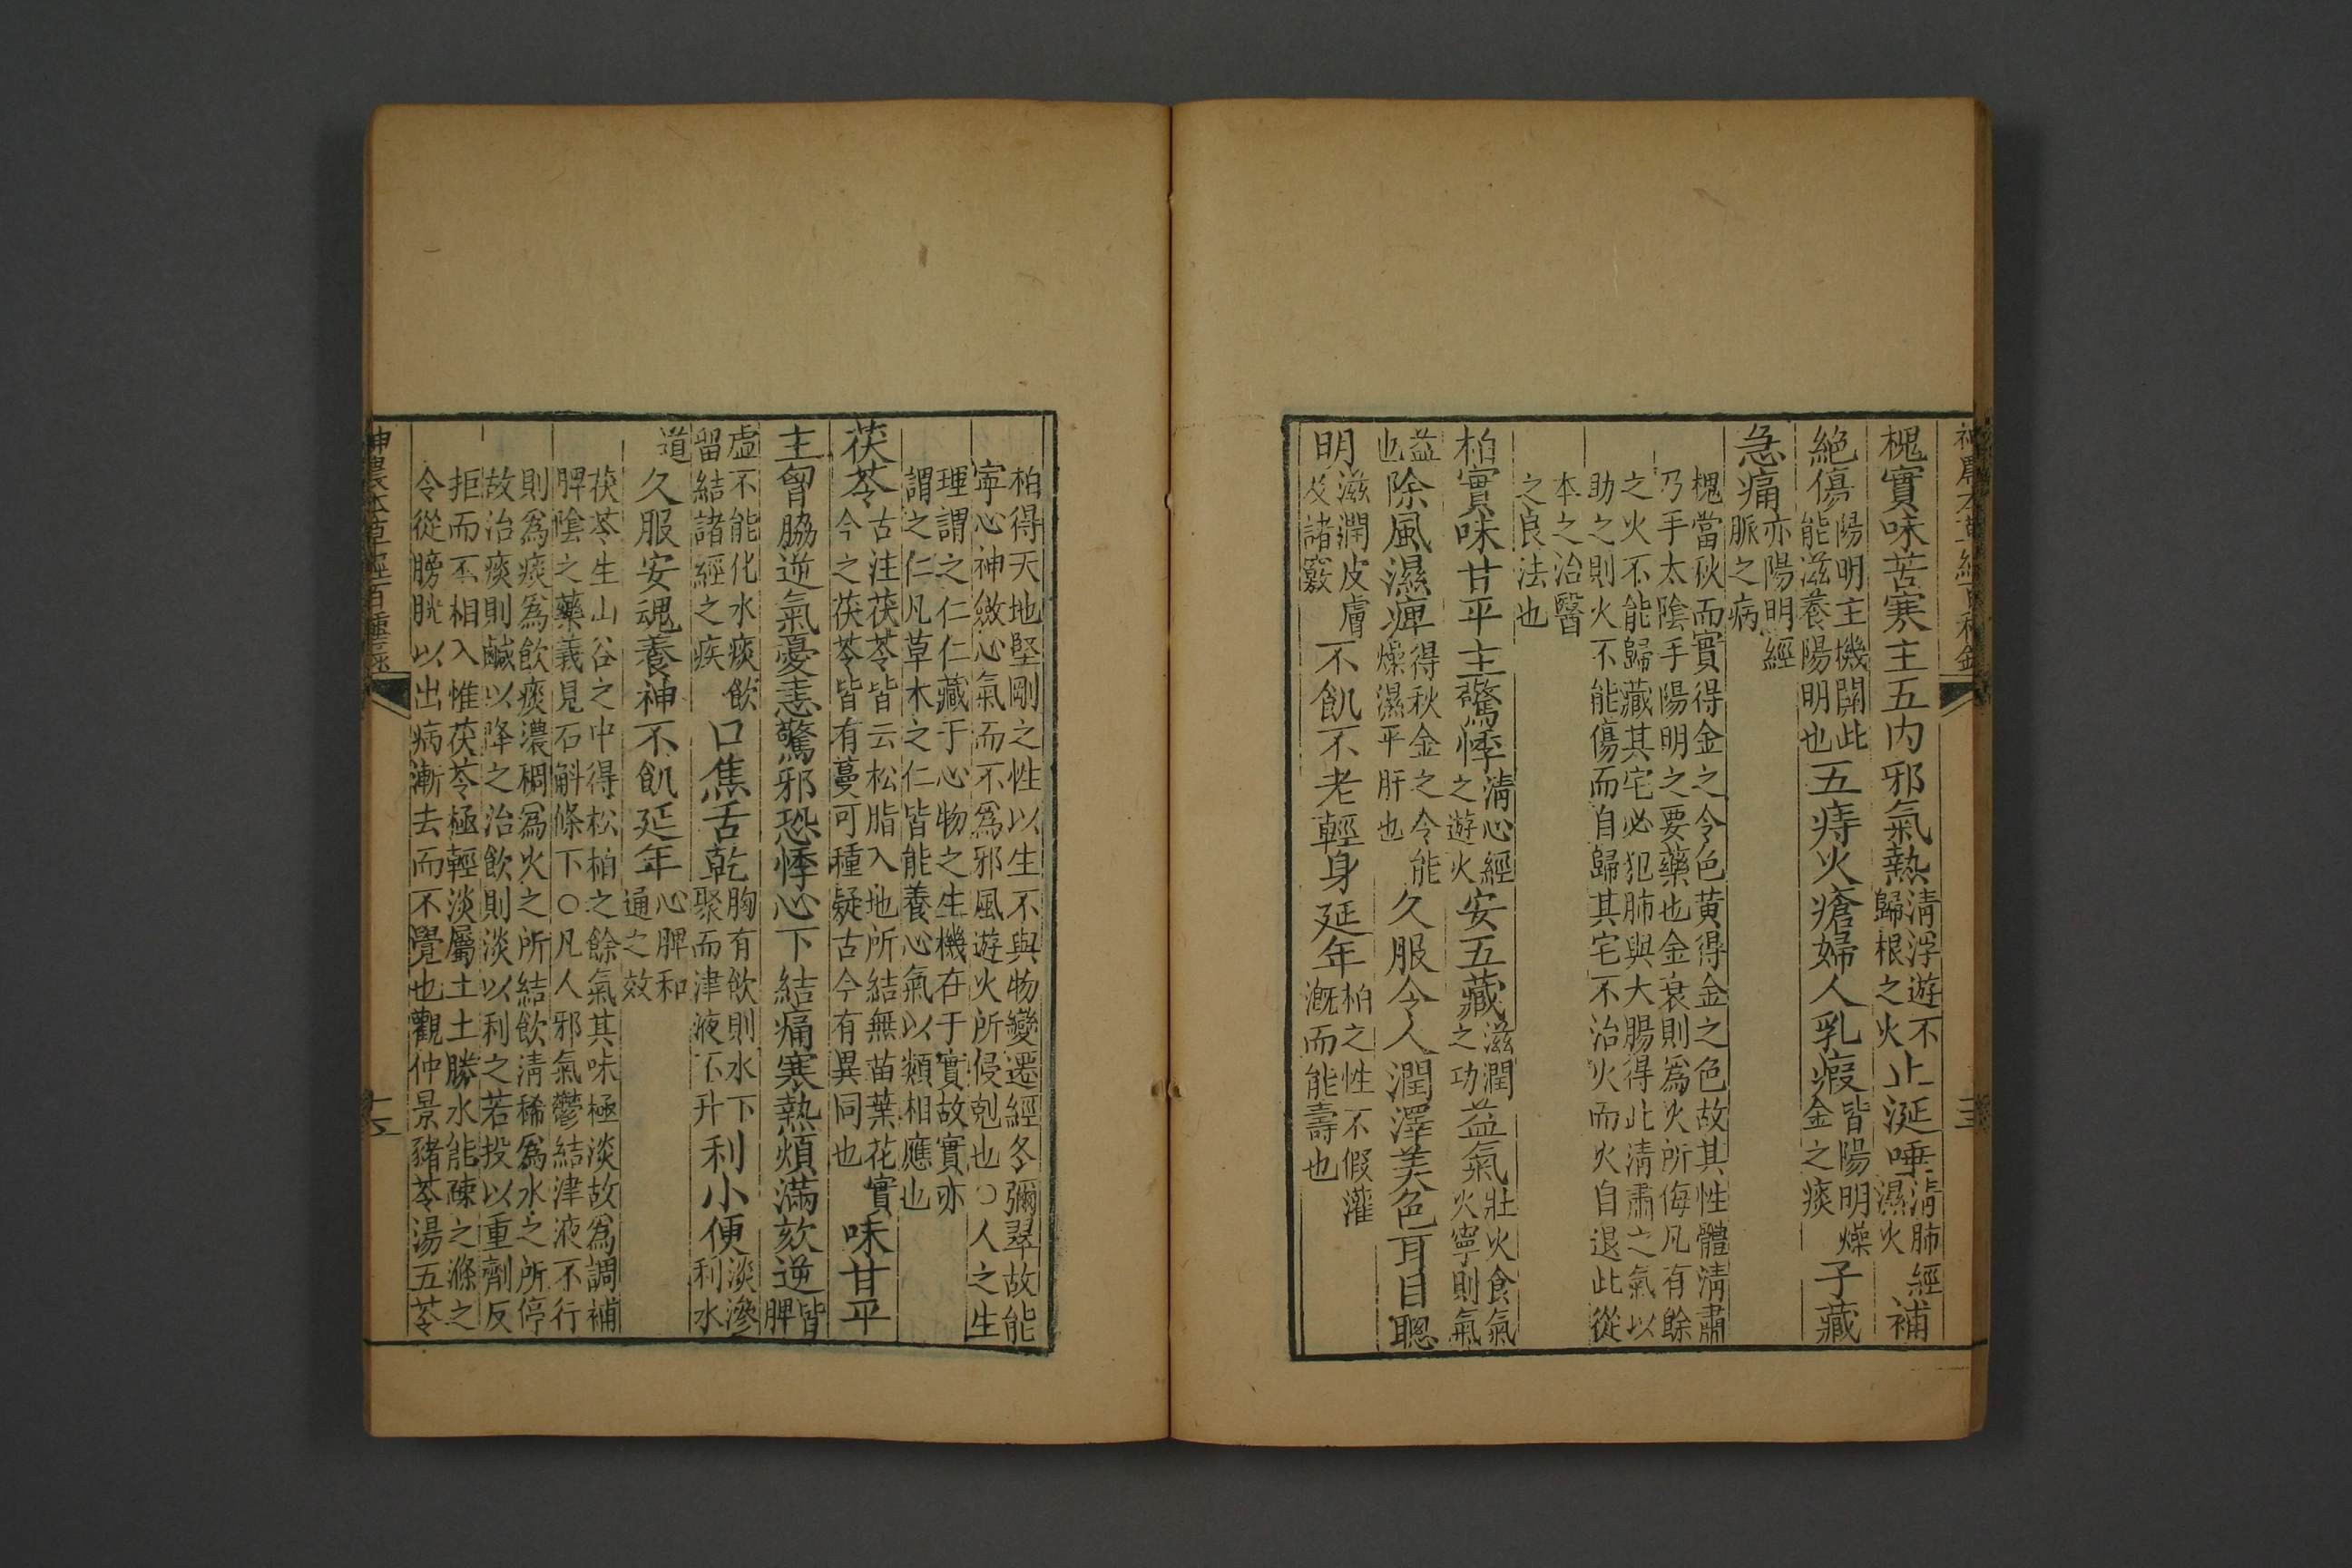 槐實味苦寒主五内邪氣熱清浮遊不歸根之火止涎唾清肺經濕火補
絶傷陽明主機關此能滋養陽明也五痔火瘡婦人乳瘕皆陽明燥金之痰子藏
急痛亦陽明經脈之病
槐當秋而實得金之令色黄得金之色故其性體清肅
乃手太陰手陽明之要藥也金衰則爲火所侮凡有餘
之火不能歸藏其宅必犯肺與大腸得此清肅之氣以
助之則火不能傷而自歸其宅不治火而火自退此從
本之治醫
之良法也
柏實味甘平主驚悸清心經之遊火安五藏滋潤之功益氣壯火食氣火寧則氣
益也除風濕痺得秋金之令能燥濕平肝也久服令人潤澤美色耳目聰
明滋潤皮膚及諸竅不飢不老輕身延年柏之性不假灌溉而能壽也
柏得天地堅剛之性以生不與物變遷經冬彌翠故能
寧心神斂心氣而不爲邪風遊火所侵剋也○人之生
理謂之仁仁藏于心物之生機在于實故實亦
謂之仁凡草木之仁皆能養心氣以類相應也
茯苓古注茯苓皆云松脂入地所結無苗葉花實今之茯苓皆有蔓可種疑古今有異同也味甘平
主胷脇逆氣憂恚驚邪恐悸心下結痛寒熱煩滿欬逆皆脾
虛不能化水痰飲留結諸經之疾口焦舌乾胸有飲則水下聚而津液不升利小便淡滲利水
道久服安魂養神不飢延年心脾和通之效
茯苓生山谷之中得松柏之餘氣其味極淡故爲調補
脾陰之藥義見石斛條下○凡人邪氣鬱結津液不行
則爲痰爲飲痰濃稠爲火之所結飲清稀爲水之所停
故治痰則鹹以降之治飲則淡以利之若投以重劑反
拒而不相入惟茯苓極輕淡屬土土勝水能疎之滌之
令從膀胱以出病漸去而不覺也觀仲景豬苓湯五苓
神農本草經百種錄